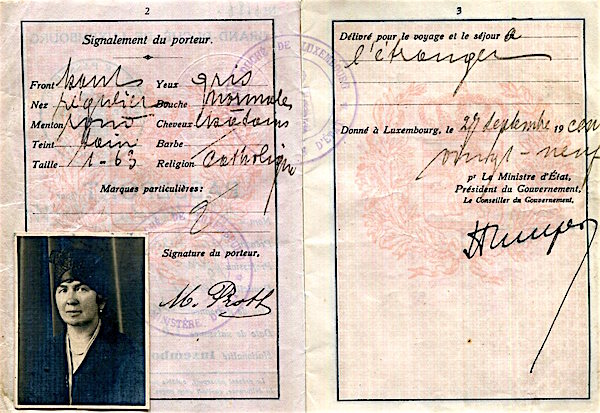 2
Signalement du porteur.
Front haut Yeux gris
Nez régulier Bouche normale
Menton rond Cheveux châtains
Teint sain Barbe
Taille 1-63 Religion Catholique
Marques particulières:
Signature du porteur.
M. Proth
3
Délivré pour le voyage et le séjour à
l'étranger
Donné à Luxembourg, le 27 septembre 19 cent
vingt-neuf
pr Le Ministre d'État,
Président du Gouvernement,
Le Conseiller du Gouvernement,
DE LUXEMBOURG